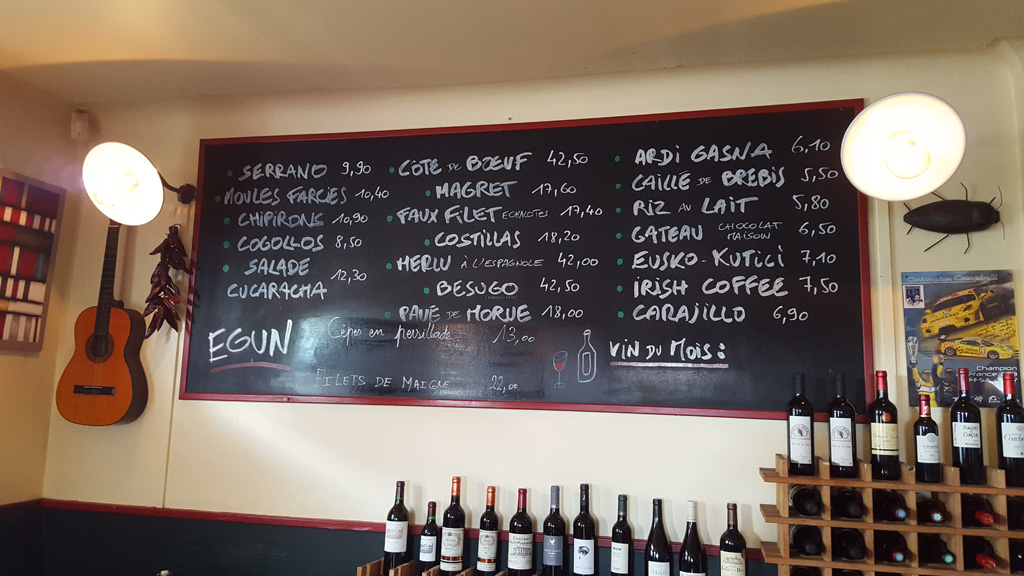 SERRANO 9,90
MOULES FARCIES 10,40
CHIPIRONS 10,90
COGOLLOS 8,50
SALADE
CUCARACHA 12,30
CÔTE DE BŒUF 42,50
MAGRET 17,60
FAUX FILET ECHALOTES 17,40
COSTILLAS 18,20
MERLU À L'ESPAGNOLE 42,00
BESUGO 42,50
PAVÉ DE MORUE 18,00
ARDI GASNA 6,10
CAILLÉ DE BREBIS 5,50
RIZ AU LAIT 5,80
GATEAU CHOCOLAT MAISON 6,50
EUSKO-KUTICI 7,10
IRISH COFFEE 7,50
CARAJILLO 6,90
EGUN
Cèpes en persillade 13,00
FILETS DE MAIGRE 22,00
VIN DU MOIS:
Champion